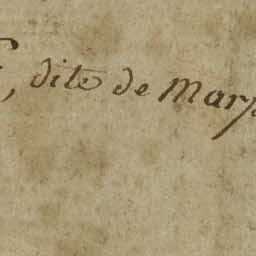 , dite de Mars